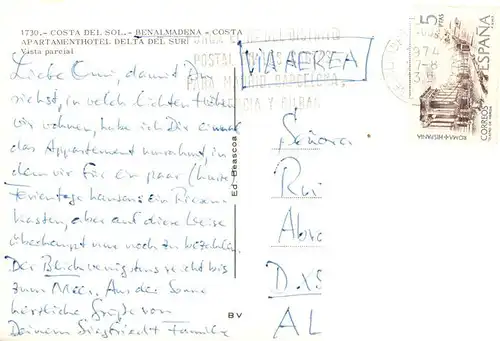 1730.- COSTA DEL SOL.- BENALMADENA - COSTA
APARTAMENTHOTEL DELTA DEL SUR
Vista parcial
Liebe Omi, damit Du
siehst, in welch lichten Höhen
wir wohnen, habe ich Dir einmal
das Appartement umrahmt, in
dem wir für ein paar
Ferientage hausen: ein Riesen-
kasten, aber auf diese Weise
überhaupt nur noch zu bezahlen.
Der Blick wenigstens reicht bis
zum Meer. Aus der Sonne
herzliche Grüße von
Deinem Siegfried + Familie
Ed. Beascoa
BV
VIA AEREA
DEL DISTRITO
POSTAL
PARA MADRID, BARCELONA,
Y BILBAO
974
5
PTAS
ESPAÑA
CORREOS
ROMA+HISPANIA
Señora
Rui
D.XS
AL